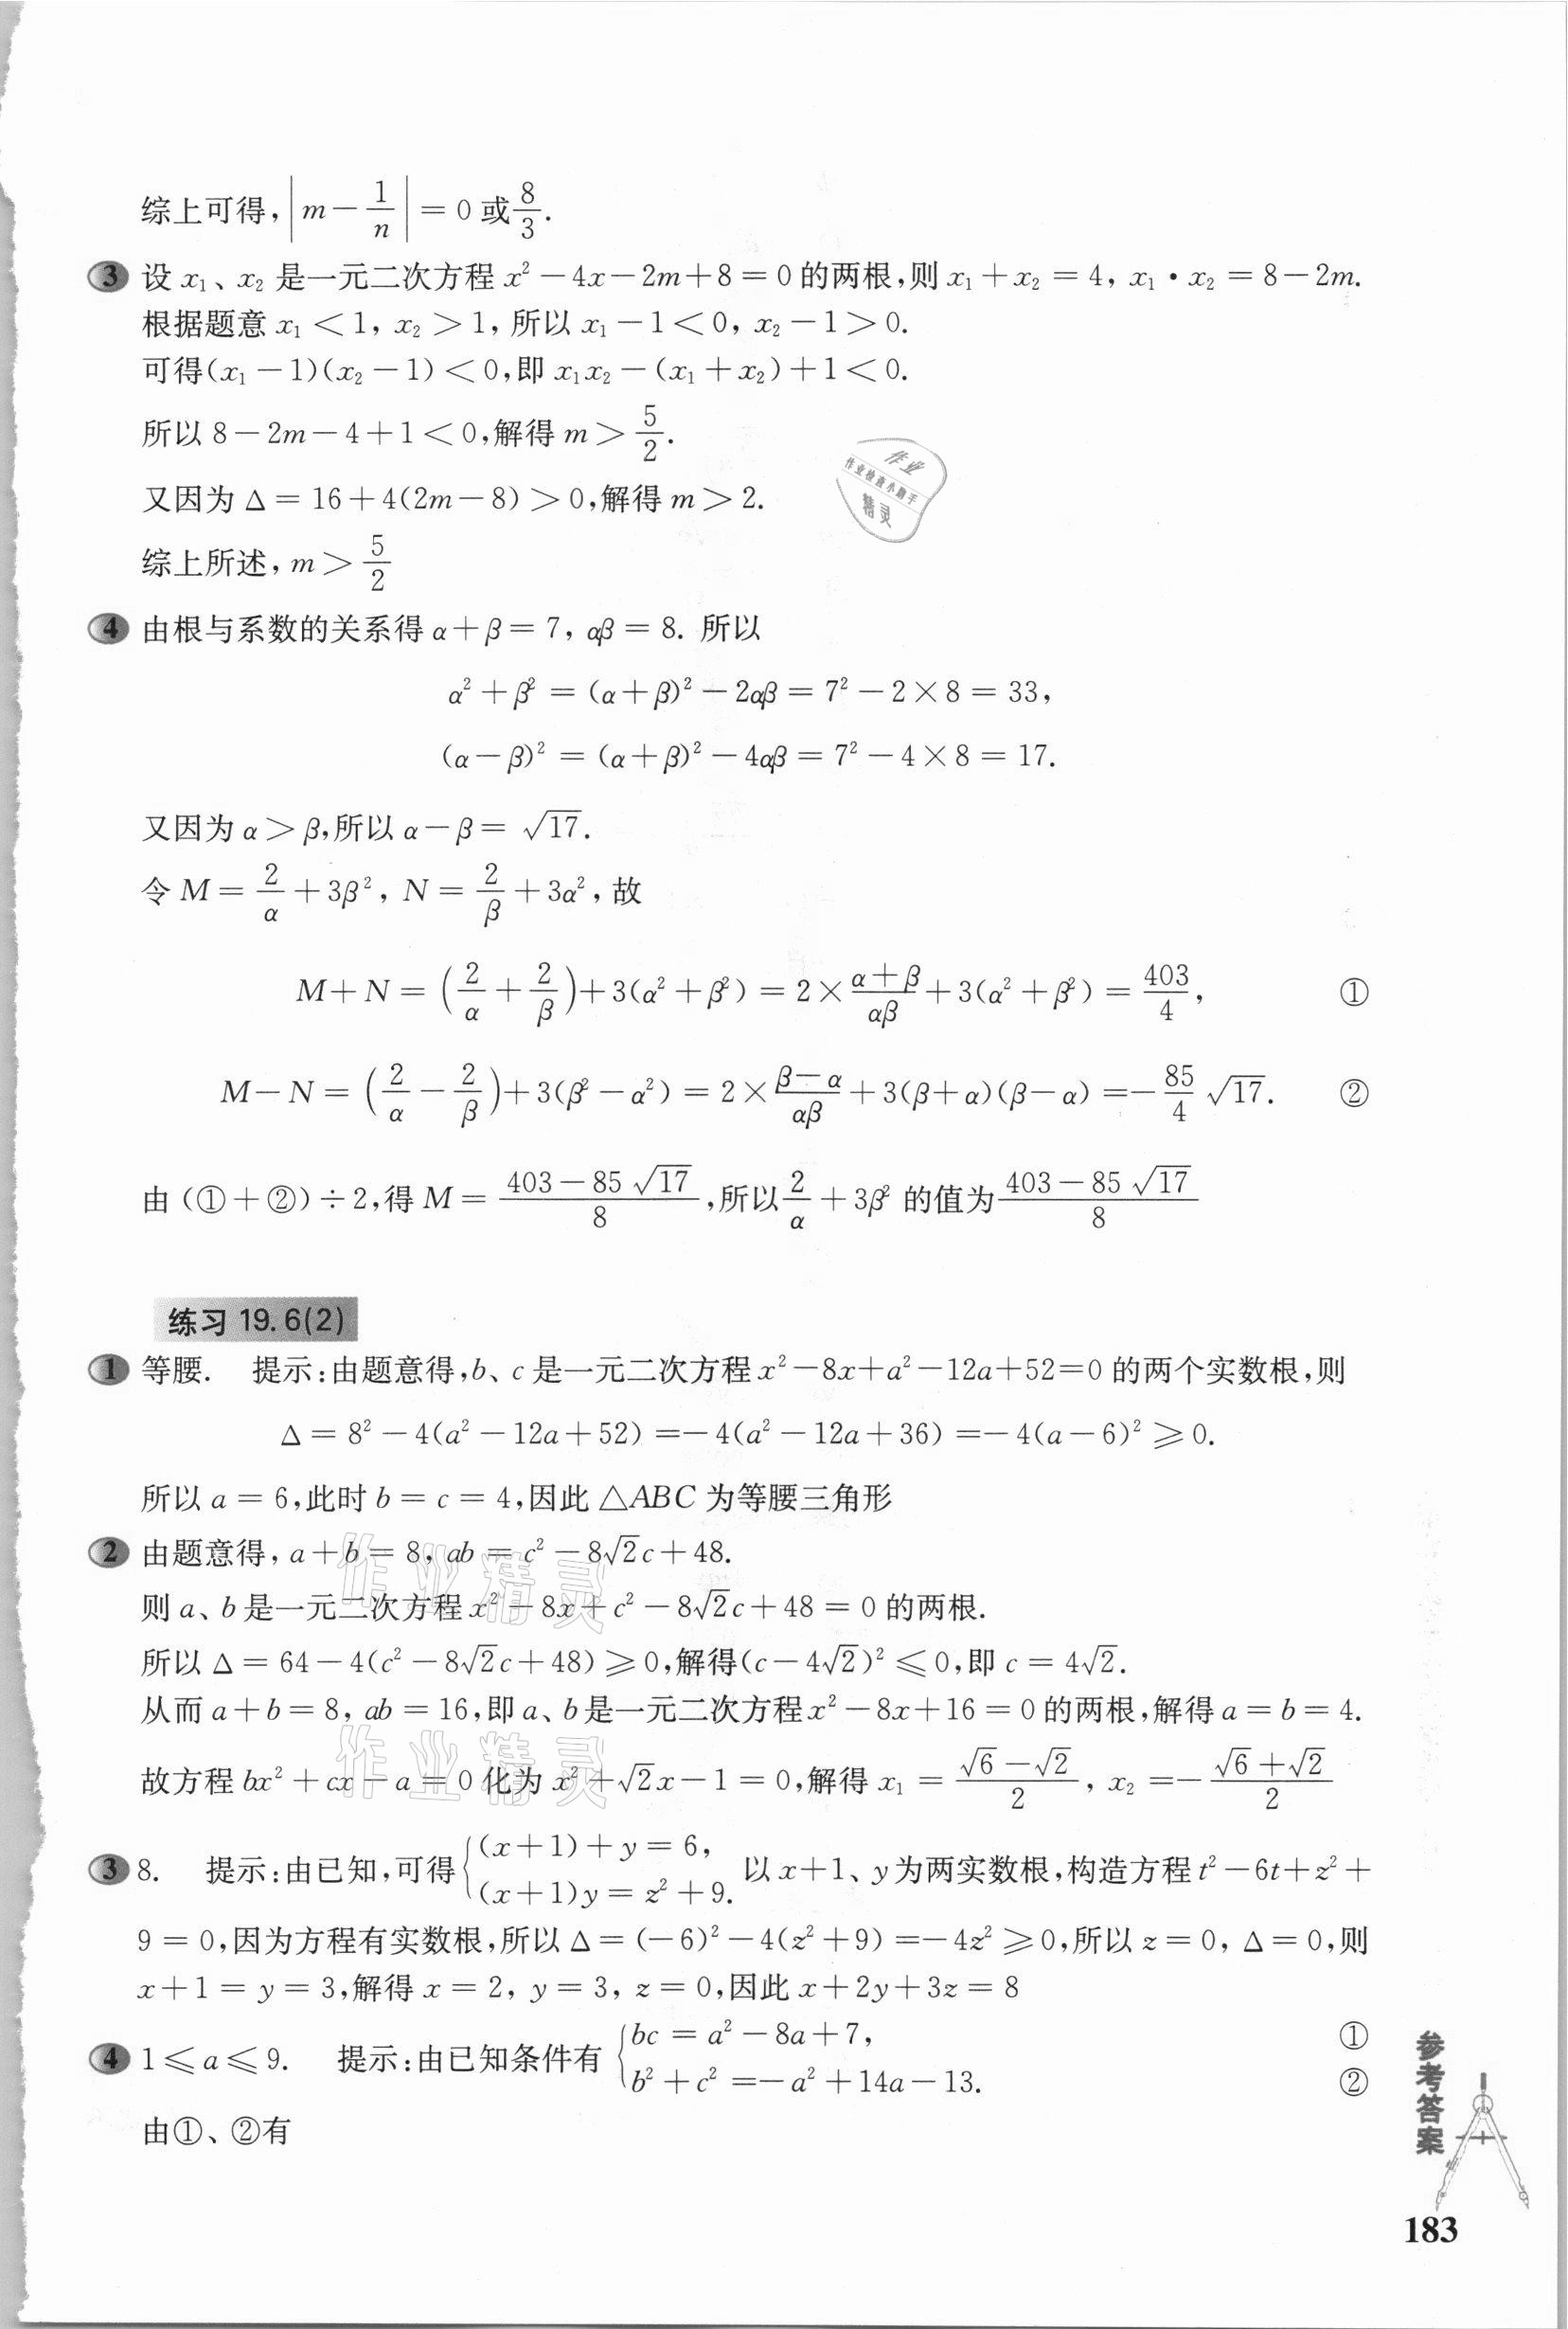 综上可得,|m-1/n|=0或8/3.
3 设 x₁、x₂ 是一元二次方程 x²-4x-2m+8=0的两根,则 x₁+x₂=4, x₁·x₂=8-2m.
根据题意 x₁<1, x₂>1, 所以 x₁-1<0, x₂-1>0.
可得(x₁-1)(x₂-1)<0,即 x₁x₂-(x₁+x₂)+1<0.
所以 8-2m-4+1<0,解得 m>5/2.
又因为 Δ=16+4(2m-8)>0,解得 m>2.
综上所述, m>5/2
作业
作业检查小助手
精灵
4 由根与系数的关系得 α+β=7, αβ=8. 所以
α²+β²=(α+β)²-2αβ=7²-2×8=33,
(α-β)²=(α+β)²-4αβ=7²-4×8=17.
又因为 α>β,所以 α-β=√17.
令 M=2/α+3β², N=2/β+3α²,故
M+N=(2/α+2/β)+3(α²+β²)=2×(α+β)/(αβ)+3(α²+β²)=403/4, ①
M-N=(2/α-2/β)+3(β²-α²)=2×(β-α)/(αβ)+3(β+α)(β-α)=-85/4√17. ②
由 (①+②)÷2,得 M=(403-85√17)/8,所以2/α+3β² 的值为(403-85√17)/8
练习 19.6(2)
1 等腰. 提示:由题意得,b、c 是一元二次方程 x²-8x+a²-12a+52=0 的两个实数根,则
Δ=8²-4(a²-12a+52)=-4(a²-12a+36)=-4(a-6)²≥0.
所以 a=6,此时 b=c=4,因此 △ABC 为等腰三角形
2 由题意得, a+b=8, ab=c²-8√2c+48.
则 a、b 是一元二次方程 x²-8x+c²-8√2c+48=0 的两根.
作业精灵
所以 Δ=64-4(c²-8√2c+48)≥0,解得(c-4√2)²≤0,即 c=4√2.
从而 a+b=8, ab=16,即 a、b 是一元二次方程 x²-8x+16=0 的两根,解得 a=b=4.
故方程 bx²+cx-a=0 化为 x²+√2x-1=0,解得 x₁=(√6-√2)/2, x₂=-(√6+√2)/2
作业精灵
3 8. 提示:由已知,可得{(x+1)+y=6, (x+1)y=z²+9. 以 x+1、y 为两实数根,构造方程 t²-6t+z²+
9=0,因为方程有实数根,所以 Δ=(-6)²-4(z²+9)=-4z²≥0,所以 z=0, Δ=0,则
x+1=y=3,解得 x=2, y=3, z=0,因此 x+2y+3z=8
4 1≤a≤9. 提示:由已知条件有 {bc=a²-8a+7, ①
b²+c²=-a²+14a-13. ②
由①、②有
参考答案
183